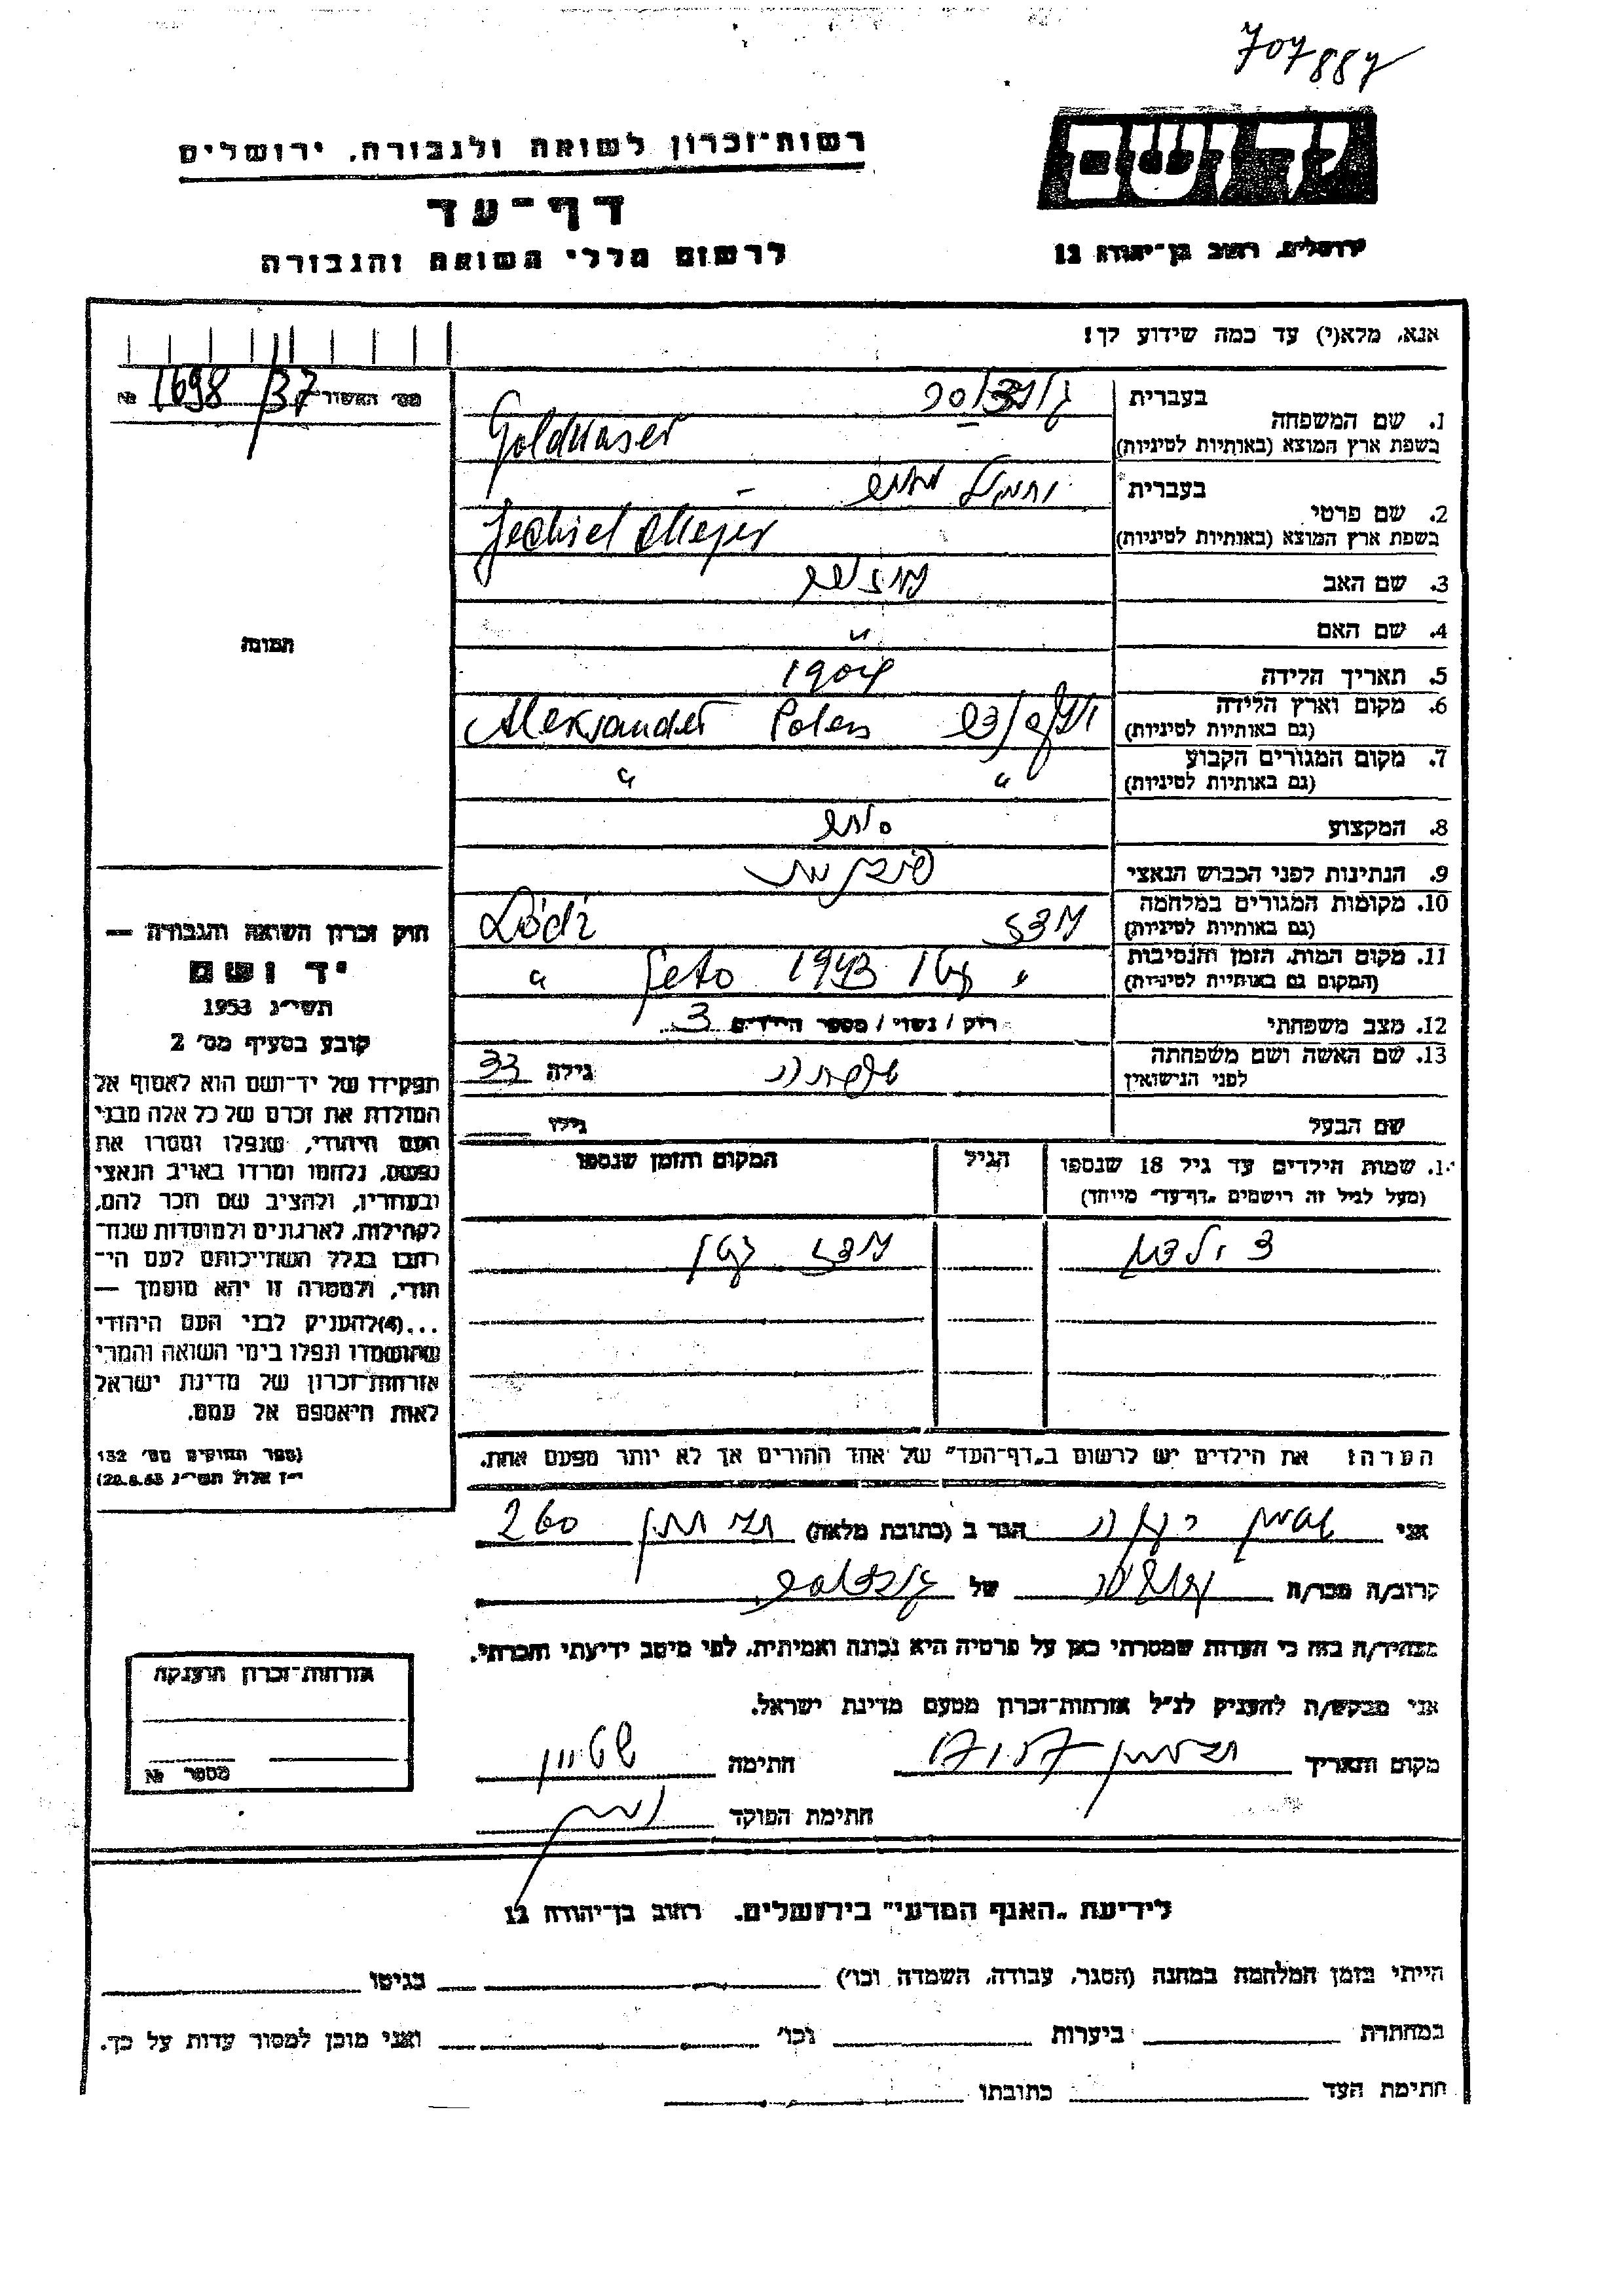 707887
יד ושם
ירושלים, רחוב בן־יהודה 12
רשות־זכרון לשואה ולגבורה, ירושלים
דף־עד
לרשום חללי השואה והגבורה
אנא, מלא(י) עד כמה שידוע לך!
מס׳ האשור 1698/37 №
1. שם המשפחה
בעברית
בשפת ארץ המוצא (באותיות לטיניות) Goldwaser
2. שם פרטי
בעברית יחיאל מאיר
בשפת ארץ המוצא (באותיות לטיניות) Jechiel Mejer
3. שם האב
4. שם האם "
5. תאריך הלידה 1904
6. מקום וארץ הלידה
(גם באותיות לטיניות) Aleksander Polen
7. מקום המגורים הקבוע
(גם באותיות לטיניות) " "
8. המקצוע סוחר
9. הנתינות לפני הכבוש הנאצי פולנית
10. מקומות המגורים במלחמה
(גם באותיות לטיניות) לודז Lódź
11. מקום המות, הזמן והנסיבות
(המקום גם באותיות לטיניות) " גטו 1943 Geto "
12. מצב משפחתי רווק / נשוי / מספר הילדים 3
13. שם האשה ושם משפחתה
לפני הנישואין גילה 33
שם הבעל גילו
שמות הילדים עד גיל 18 שנספו
(מעל לגיל זה רישמים „דף־עד״ מייוחד)
הגיל
המקום והזמן שנספו
3 ילדים לודז גטו
הערה: את הילדים יש לרשום ב„דף־העד״ של אחד ההורים אך לא יותר מפעם אחת.
תמונה
חוק זכרון השואה והגבורה —
יד ושם
תשי״ג 1953
קובע בסעיף מס׳ 2
תפקידו של יד־ושם הוא לאסוף אל
המולדת את זכרם של כל אלה מבני
העם היהודי, שנפלו ומסרו את
נפשם, נלחמו ומרדו באויב הנאצי
ובעוזריו, ולהציב שם וזכר להם,
לקהילות, לארגונים ולמוסדות שנח־
רבו בגלל השתייכותם לעם הי־
הודי, ולמטרה זו יהא מוסמך —
...(4) להעניק לבני העם היהודי
שהושמדו ונפלו בימי השואה והמרי
אזרחות־זכרון של מדינת ישראל
לאות היאספם אל עמם.
(ספר החוקים מס׳ 132
י״ז אלול תשי״ג 28.8.53)
אני הגר ב (כתובת מלאה) 260
קרוב/ה מכר/ה של
מצהיר/ה בזה כי העדות שמסרתי כאן על פרטיה היא נכונה ואמיתית, לפי מיטב ידיעתי והכרתי.
אני מבקש/ת להעניק לנ״ל אזרחות־זכרון מטעם מדינת ישראל.
מקום ותאריך חתימה
חתימת הפוקד
אזרחות־זכרון הוענקה
מספר №
לידיעת „האגף המדעי״ בירושלים, רחוב בן־יהודה 12
הייתי בזמן המלחמה במחנה (הסגר, עבודה, השמדה וכו׳) בגיטו
במחתרת ביערות וכו׳ ואני מוכן למסור עדות על כך.
חתימת העד כתובתו